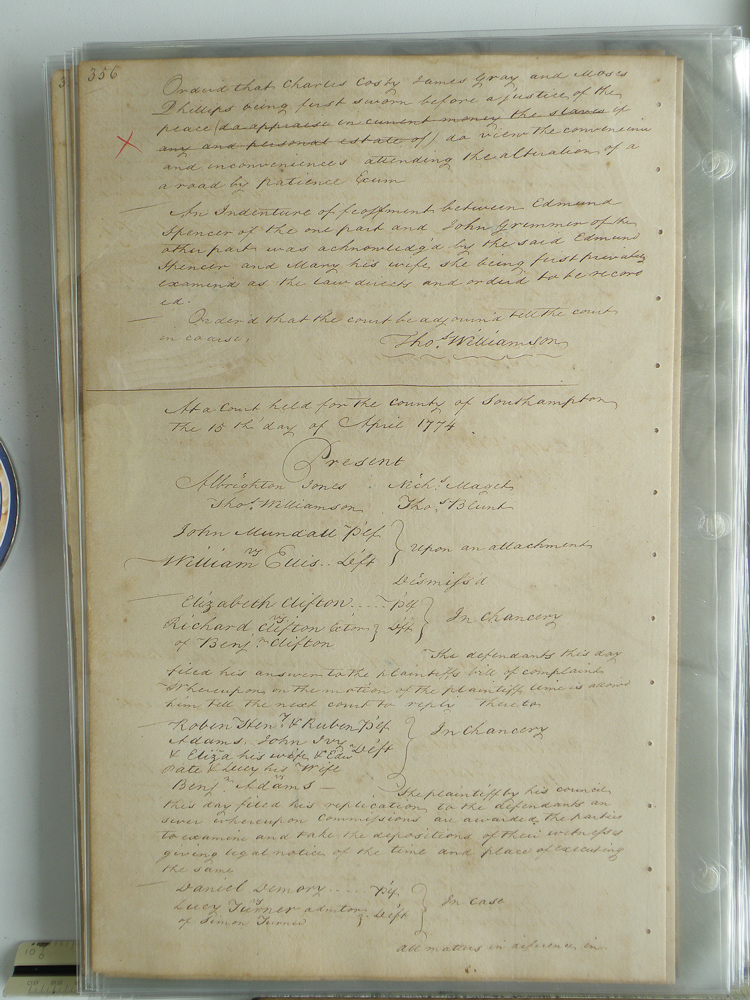 356
3
Orderd that Charles Cosby James Gray and Moses
Phillips being first sworn before a justice of the
peace (do appraise in current money the slaves if
any and personal estate of) do view the convenien
and inconveniences attending the alteration of a
a road by Patience Exum
An Indenture of feoffment between Edmund
Spencer of the one part and John Grimmer of the
other part was acknowledg'd by the said Edmund
Spencer and Mary his wife, she being first privately
examind as the law directs and orderd to be record
ed.
Order'd that the court be adjourn'd till the court
in course.
Thos. Williamson
At a Court held for the county of Southampton
the 15 th day of April 1774
Present
Albrighton Jones Nichs. Maget
Thos. Williamson Thos. Blunt
John Mundall Plf
vs
William Ellis .. Deft
Upon an attachment
Dismiss'd
Elizabeth Clifton .... Plf
vs
Richard Clifton Exter Deft
of Benjn. Clifton
In Chancery
The defendants this day
filed his answer to the plaintiffs bill of complaint
Whereupon on the motion of the plaintiff time is allow'd
him till the next court to reply thereto
Robin Hen.y & Ruben Plf
Adams, John Ivy Deft
& Eliza his wife & Edw
Tate & Lucy his Wife
vs
Benjn. Adams -
In Chancery
The plaintiff by his council
this day filed his replication to the defendants an
swer whereupon Commissions are awarded the parties
to examine and take the depositions of their witnesses
giving legal notice of the time and place of executing
the same
Daniel Demory .... Plf
vs
Lucy Turner admtrx Deft
of Simon Turner
In case
all matters in diference in